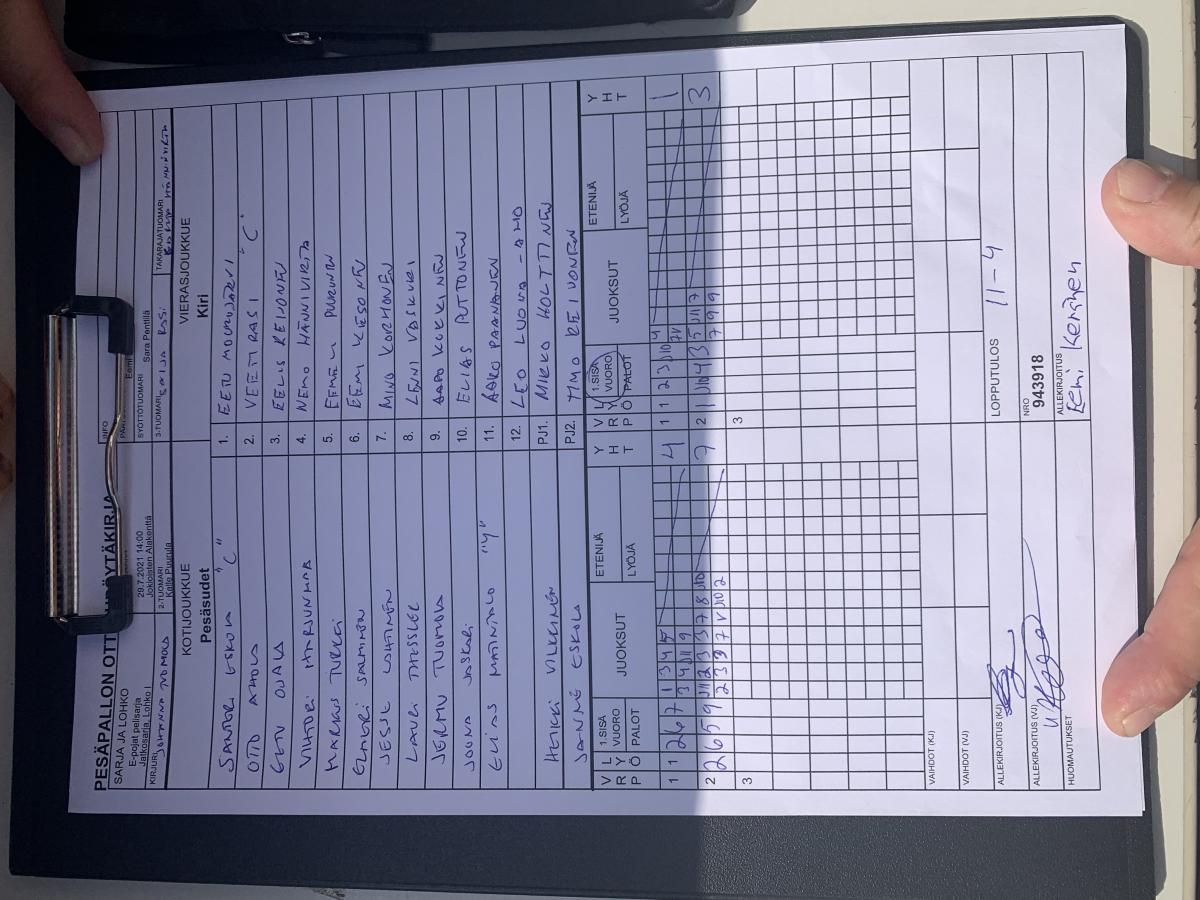 PESÄPALLON OTT PÖYTÄKIRJA
SARJA JA LOHKO
E-pojat pelisarja
Jatkosarja, Lohko I
29.7.2021 14:00
Jokioisten Ajokenttä
INFO
KIRJURI
JOHANNA
2-TUOMARI
Kalle Puurula
SYÖTTÖTUOMARI Sara Penttilä
3-TUOMARI
TAKARAJATUOMARI
Eemi
KOTIJOUKKUE
Pesäsudet
VIERASJOUKKUE
Kiri
SANTERI ESKOLA "C" 1. EETU MOURUJÄRVI
OTTO AHOLA 2. VEETI RASI "C"
EETU OJALA 3. EELIS REIVONEN
VIHTORI HARJUNMAA 4. NEMO HÄNNIVIRTA
MARKUS TURKKI 5. EEMIL PUURUNEN
ELMERI SALMINEN 6. EEMI KESONEN
JESSE LAHTINEN 7. MINO KORHONEN
LAURI THESSLER 8. LENNI VASKURI
JERMU TUOMOLA 9. AAPO KOKKINEN
JOONA JASKARI 10. ELIAS PUTTONEN
ELIAS MATINTALO "Y" 11. AARO PAANANEN
12. LEO LUOMA-AHO
HEIKKI VILKKINEN PJ1. MIKKO HOLTTINEN
JANNE ESKOLA PJ2. TIMO REIVONEN
V R P
L Y Ö
1.SISÄ VUORO PALOT
JUOKSUT
ETENIJÄ
LYÖJÄ
Y H T
V R P
L Y Ö
1.SISÄ VUORO PALOT
JUOKSUT
ETENIJÄ
LYÖJÄ
Y H T
1 1 2 6 7 1 3 4 5 4 1 1 2 3 J10 4 1
3 4 J11 9
2 2 6 5 9 J11 2 3 3 7 8 J10 7 2 1 J10 4 3 5 J11 7 3
2 3 3 7 V J10 2 7 9 9
3 3
VAIHDOT (KJ)
VAIHDOT (VJ)
ALLEKIRJOITUS (KJ)
LOPPUTULOS 11-4
ALLEKIRJOITUS (VJ)
NRO
943918
HUOMAUTUKSET
ALLEKIRJOITUS
Eemi Keränen